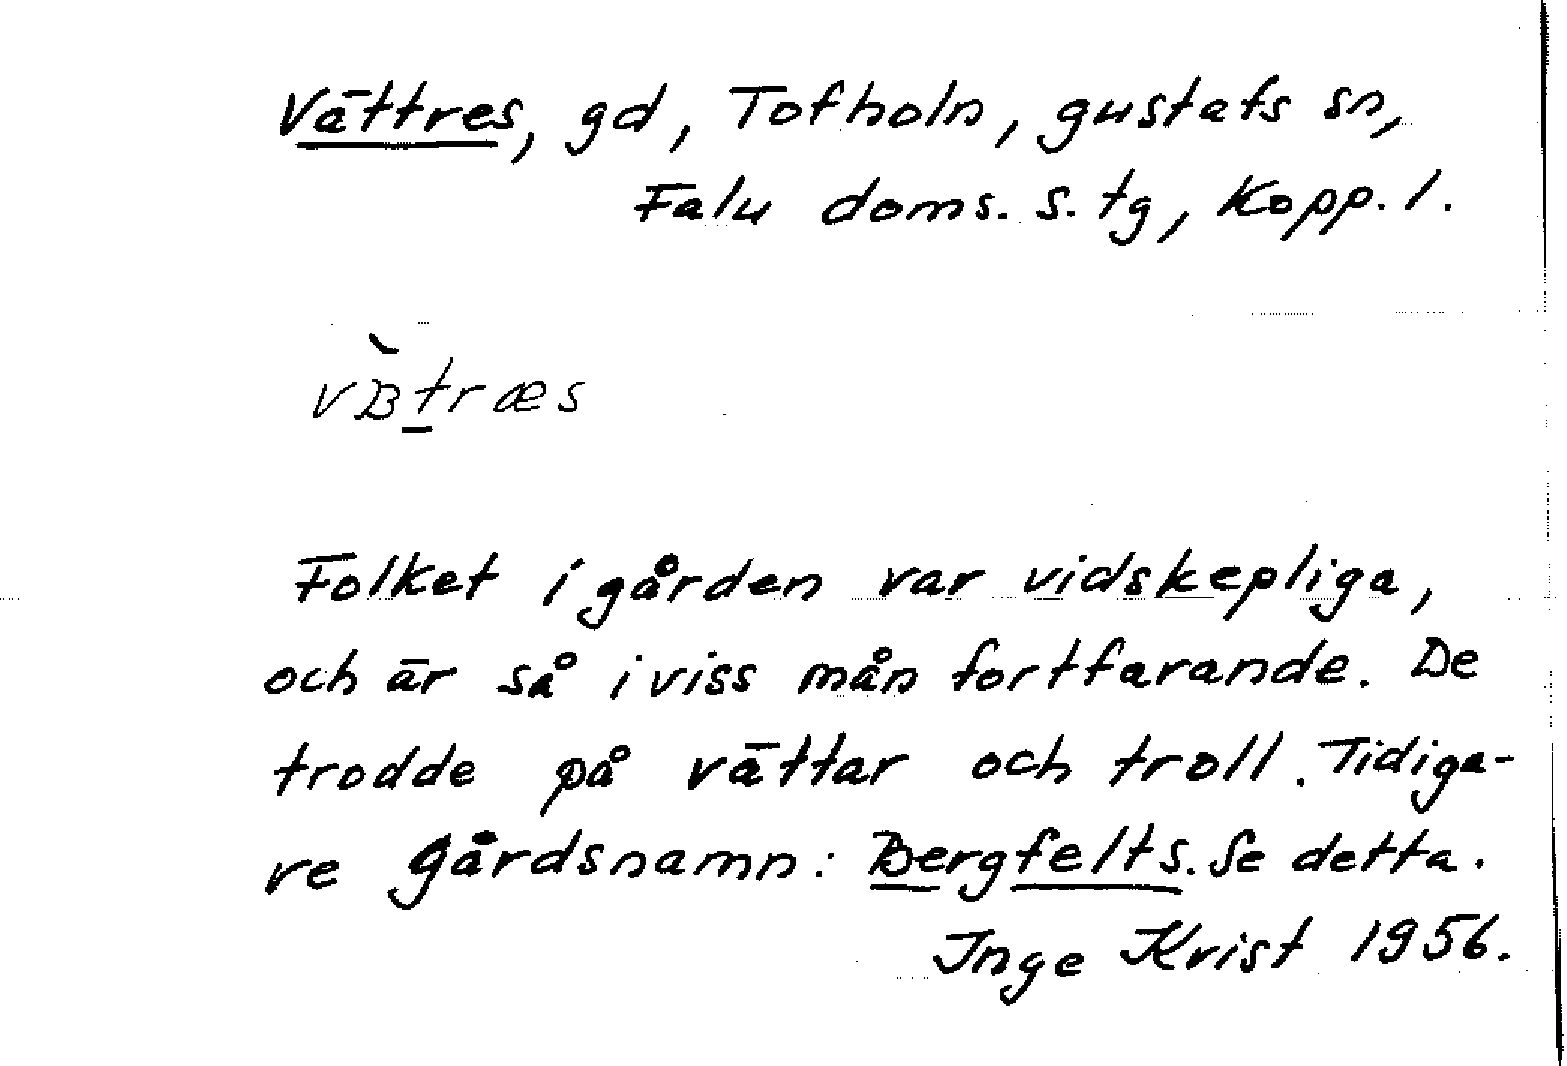 Vättres, gd, Tofholn, gustafs sn,
Falu doms. s. tg, Kopp. l.
vB̀træs
Folket i gården var vidskepliga,
och är så i viss mån fortfarande. De
trodde på vättar och troll. Tidiga-
re gårdsnamn: Bergfelts. Se detta.
Inge Krist 1956.